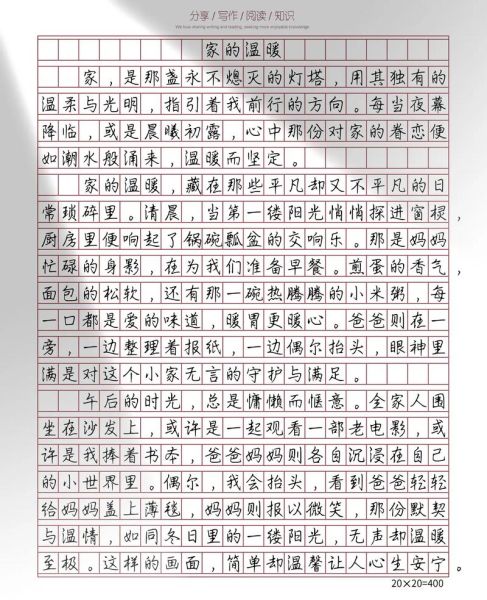 分享 / 写作 / 阅读 / 知识
We love sharing writing and reading, seeking more enjoyable knowledge.
家的温暖
家，是那盏永不熄灭的灯塔，用其独有的
温柔与光明，指引着我前行的方向。每当夜幕
降临，或是晨曦初露，心中那份对家的眷恋便
如潮水般涌来，温暖而坚定。
家的温暖，藏在那些平凡却又不平凡的日
常琐碎里。清晨，当第一缕阳光悄悄探进窗棂，
厨房里便响起了锅碗瓢盆的交响乐。那是妈妈
忙碌的身影，在为我们准备早餐。煎蛋的香气，
面包的松软，还有那一碗热腾腾的小米粥，每
一口都是爱的味道，暖胃更暖心。爸爸则在一
旁，一边整理着报纸，一边偶尔抬头，眼神里
满是对这个小家无言的守护与满足。
午后的时光，总是慵懒而惬意。全家人围
坐在沙发上，或许是一起观看一部老电影，或
许是我捧着书本，爸爸妈妈则各自沉浸在自己
的小世界里。偶尔，我会抬头，看到爸爸轻轻
给妈妈盖上薄毯，妈妈则报以微笑，那份默契
与温情，如同冬日里的一缕阳光，无声却温暖
至极。这样的画面，简单却温馨让人心生安宁。
20×20=400